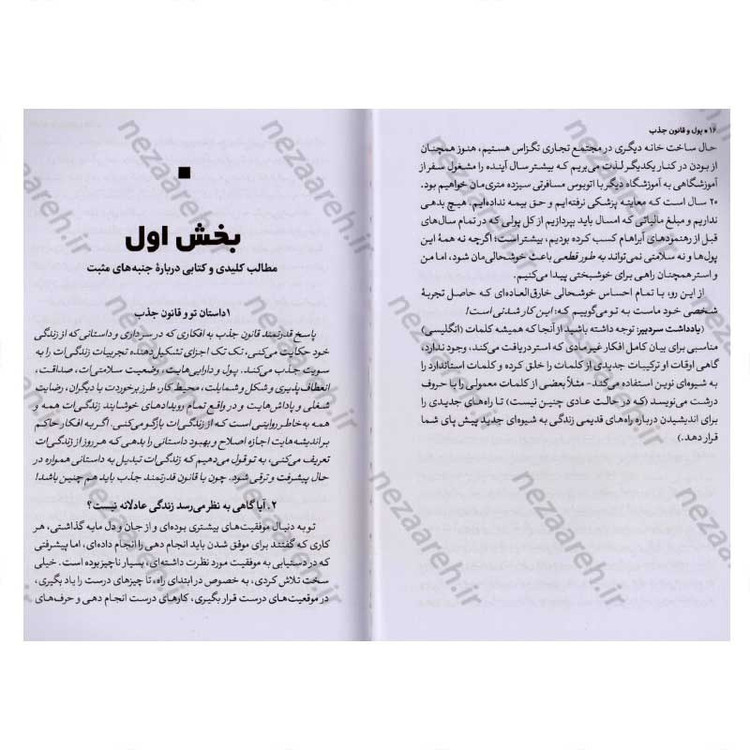 ۱۶ ● پول و قانون جذب
حال ساخت خانه دیگری در مجتمع تجاری تگزاس هستیم، هنوز همچنان
از بودن در کنار یکدیگر لذت می‌بریم که بیشتر سال آینده را مشغول سفر از
آموزشگاهی به آموزشگاه دیگر با اتوبوس مسافرتی سیزده متری‌مان خواهیم بود.
۲۰ سال است که معاینه پزشکی نرفته‌ایم و حق بیمه نداده‌ایم. هیچ بدهی
نداریم و مبلغ مالیاتی که امسال باید بپردازیم از کل پولی که در تمام سال‌های
قبل از رهنمودهای آبراهام کسب کرده بودیم، بیشتر است؛ اگرچه نه همهٔ این
پول‌ها و نه سلامتی نمی‌تواند به طور قطعی باعث خوشحالی‌مان شود، اما من
و استر همچنان راهی برای خوشبختی پیدا می‌کنیم.
از این رو، با تمام احساس خوشحالی خارق‌العاده‌ای که حاصل تجربهٔ
شخصی خود ماست به تو می‌گوییم که: این کار شدنی است!
(یادداشت سردبیر: توجه داشته باشید از آنجا که همیشه کلمات (انگلیسی)
مناسبی برای بیان کامل افکار غیرمادی که استر دریافت می‌کند، وجود ندارد،
گاهی اوقات او ترکیبات جدیدی از کلمات را خلق کرده و کلمات استاندارد را
به شیوه‌ای نوین استفاده می‌کند - مثلاً بعضی از کلمات معمولی را با حروف
درشت می‌نویسد (که در حالت عادی چنین نیست) تا راه‌های جدیدی را
برای اندیشیدن درباره راه‌های قدیمی زندگی به شیوه‌ای جدید پیش پای شما
قرار دهد.)
بخش اول
مطالب کلیدی و کتابی دربارهٔ جنبه‌های مثبت
۱داستان تو و قانون جذب
پاسخ قدرتمند قانون جذب به افکاری که در سر داری و داستانی که از زندگی
خود حکایت می‌کنی، تک تک اجزای تشکیل‌دهنده تجربیات زندگی‌ات را به
سویت جذب می‌کند. پول و دارایی‌هایت، وضعیت سلامتی‌ات، صداقت،
انعطاف‌پذیری و شکل و شمایلت، محیط کار، طرز برخوردت با دیگران، رضایت
شغلی و پاداش‌هایت و در واقع تمام رویدادهای خوشایند زندگی‌ات همه و
همه به خاطر روایتی است که از زندگی‌ات بازگو می‌کنی. اگر به افکار حاکم
بر اندیشه‌هایت اجازه اصلاح و بهبود داستانی را بدهی که هر روز از زندگی‌ات
تعریف می‌کنی، به تو قول می‌دهیم که زندگی‌ات تبدیل به داستانی همواره در
حال پیشرفت و ترقی شود. چون با قانون قدرتمند جذب باید هم چنین باشد!
۲. آیا گاهی به نظر می‌رسد زندگی عادلانه نیست؟
تو به دنبال موفقیت‌های بیشتری بوده‌ای و از جان و دل مایه گذاشتی، هر
کاری که گفتند برای موفق شدن باید انجام دهی را انجام داده‌ای، اما پیشرفتی
که در دستیابی به موفقیت مورد نظرت داشته‌ای، بسیار ناچیز بوده است. خیلی
سخت تلاش کردی، به خصوص در ابتدای راه، تا چیزهای درست را یاد بگیری،
در موقعیت‌های درست قرار بگیری، کارهای درست انجام دهی و حرف‌های
nezaareh.ir
nezaareh.ir
nezaareh.ir
nezaareh.ir
nezaareh.ir
nezaareh.ir
nezaareh.ir
nezaareh.ir
nezaareh.ir
nezaareh.ir
nezaareh.ir
nezaareh.ir